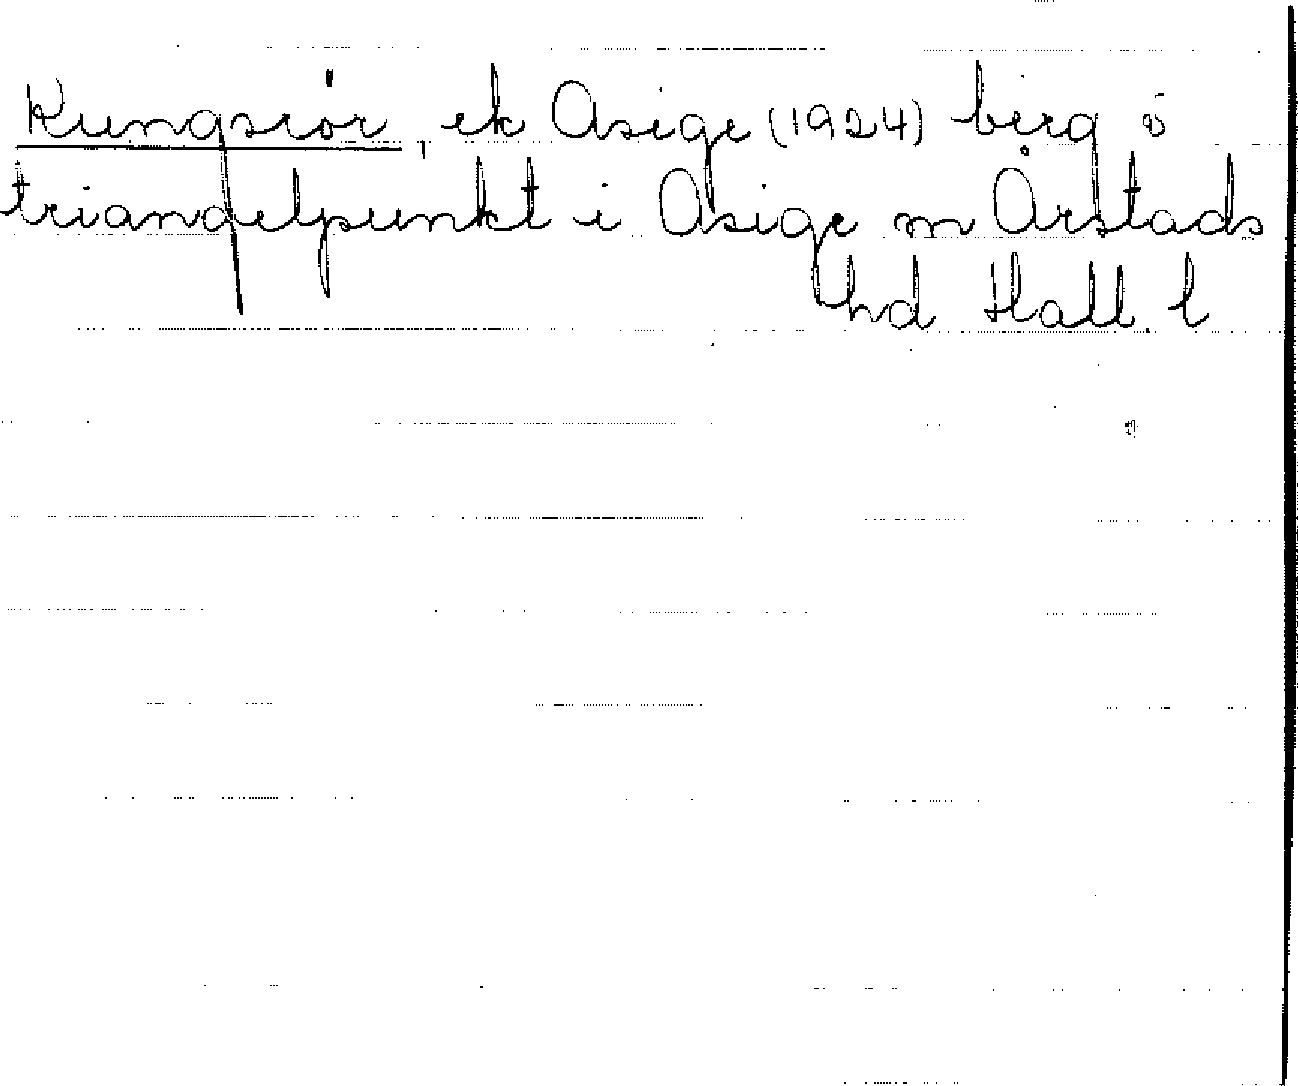 Kungsrör, ek Asige (1924) berg o
triangelpunkt i Asige sn Årstads
hd Hall. l